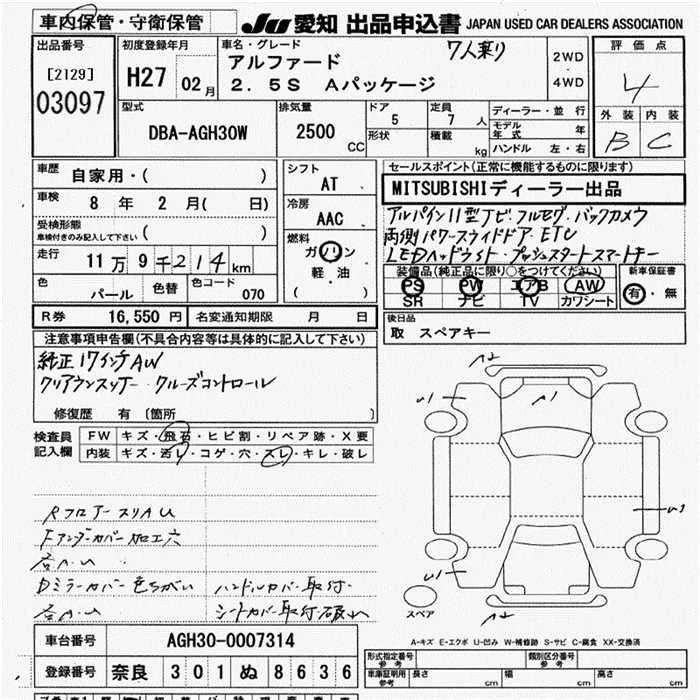 車内保管・守衛保管 JU 愛知 出品申込書 JAPAN USED CAR DEALERS ASSOCIATION
出品番号 [2129] 03097
初度登録年月 H27 02月
車名・グレード 7人乗り
アルファード
2.5S Aパッケージ
2WD・4WD
評価点 4
外装 内装
B C
型式 DBA-AGH30W
排気量 2500 CC
ドア 5 形状
定員 7 人 積載 kg
ディーラー・並行
モデル年式 年
ハンドル 左・右
車歴 自家用・( )
車検 8年 2月( 日)
受検形態 車検付きのみ記入して下さい ( )
走行 11万9千214km
色 パール 色替 色コード 070
シフト AT
冷房 AAC
燃料 ガソリン
軽・油
( )
セールスポイント(正常に機能するものに限ります)
MITSUBISHIディーラー出品
アルパイン11型ナビ フルセグ バックカメラ
両側パワースライドドア ETC
LEDヘッドライト プッシュスタートスマートキー
装備品(純正品に限り○をつけてください)
PS PW エアB AW
SR ナビ TV カワシート
新車保証書
有・無
R券 16,550円 名変通知期限 月 日
後日品
取 スペアキー
注意事項申告欄(不具合内容等は具体的に記入して下さい)
純正17インチAW
クリアランスソナー クルーズコントロール
修復歴 有 〔箇所 〕
検査員記入欄
FW キズ・飛石・ヒビ割・リペア跡・X要
内装 キズ・汚レ・コゲ・穴・スレ・キレ・破レ
RフロアースリAU
Fアンダーカバー加工穴
各A.U
Dミラーカバー色ちがい ハンドルカバー取付
各A.U シートカバー取付 破れ
A2
U1 A1
U1
U1 A2
スペア
A-キズ E-エクボ U-凹み W-補修跡 S-サビ C-腐食 XX-交換済
車台番号 AGH30-0007314
登録番号 奈良 301 ぬ 8636
形式指定番号 参考 類別区分番号 参考
車庫証明用 参考 長さ cm 幅 cm 高さ cm